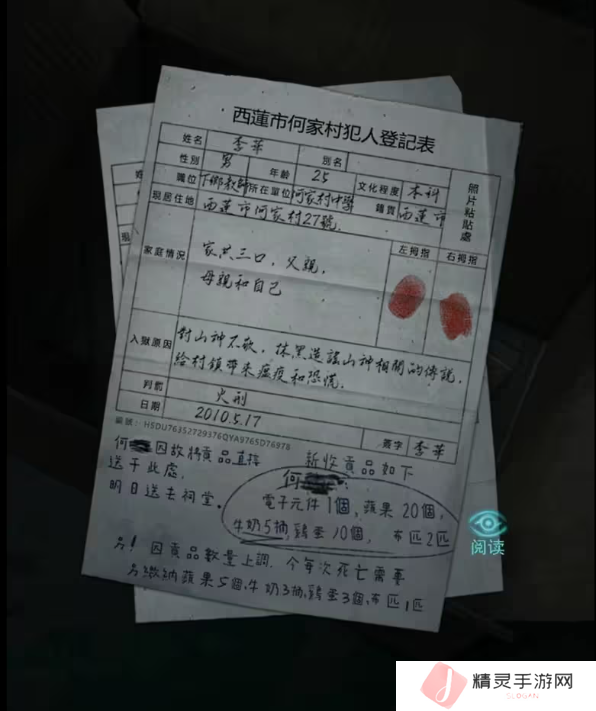 西蓮市何家村犯人登記表
姓名 李華 別名
性別 男 年齡 25 文化程度 本科 照片粘貼處
職位 下鄉教師 所在單位 何家村中學 籍貫 西蓮市
現居住地 西蓮市何家村27號.
家庭情況 家共三口，父親， 左拇指 右拇指
母親和自己
入獄原因 對山神不敬，抹黑造謠山神相關的傳說，
給村鎮帶來瘟疫和恐慌.
判罰 火刑
日期 2010.5.17 簽字 李華
編號：HSDU76352729376QYA9765D76978
何 因故將貢品直接 新收貢品如下
送于此處， 何
明日送去祠堂。 電子元件1個，蘋果20個，
牛奶5抽，鷄蛋10個， 布匹2匹
另！因貢品數量上調，今每次死亡需要
另繳納蘋果5個，牛奶3抽，鷄蛋3個，布匹1匹
阅读
精灵手游网
SLOGAN